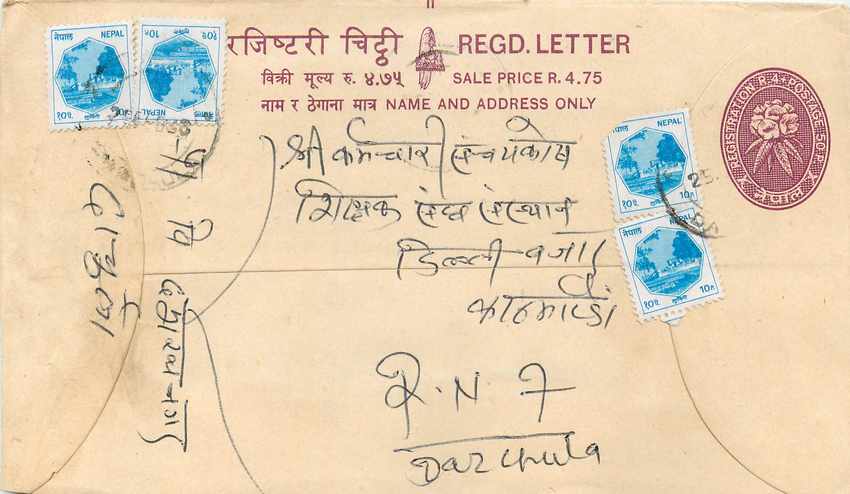 रजिष्टरी चिठ्ठी REGD. LETTER
विक्री मूल्य रु. ४.७५ SALE PRICE R. 4.75
नाम र ठेगाना मात्र NAME AND ADDRESS ONLY
नेपाल NEPAL
१०पै 10P
नेपाल NEPAL
१०पै 10P
नेपाल NEPAL
१०पै 10P
नेपाल NEPAL
१०पै 10P
REGISTRATION R.4. POSTAGE 50P.
नेपाल
श्री कर्मचारी संचयकोष
शिक्षक संघ संस्थान
डिल्ली बजार
काठमाण्डौं
R. N. 7
Darchula